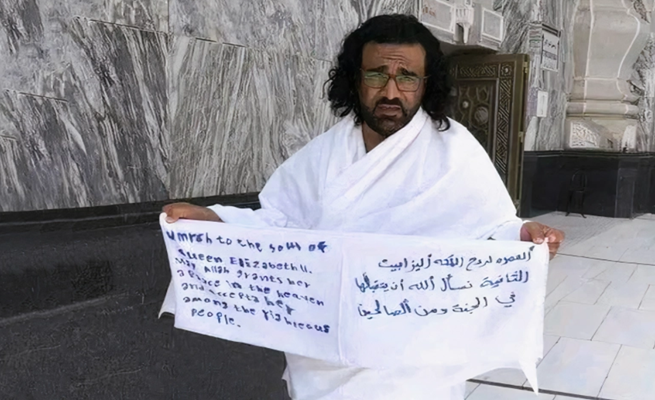 Umrah to the soul of
Queen Elizabeth II.
May Allah grants her
a place in the heaven
and accepts her
among the righteous
people.
العمره لروح الملكة أليزابيث
الثانية نسأل الله أن يتقبلها
في الجنة ومن الصالحين